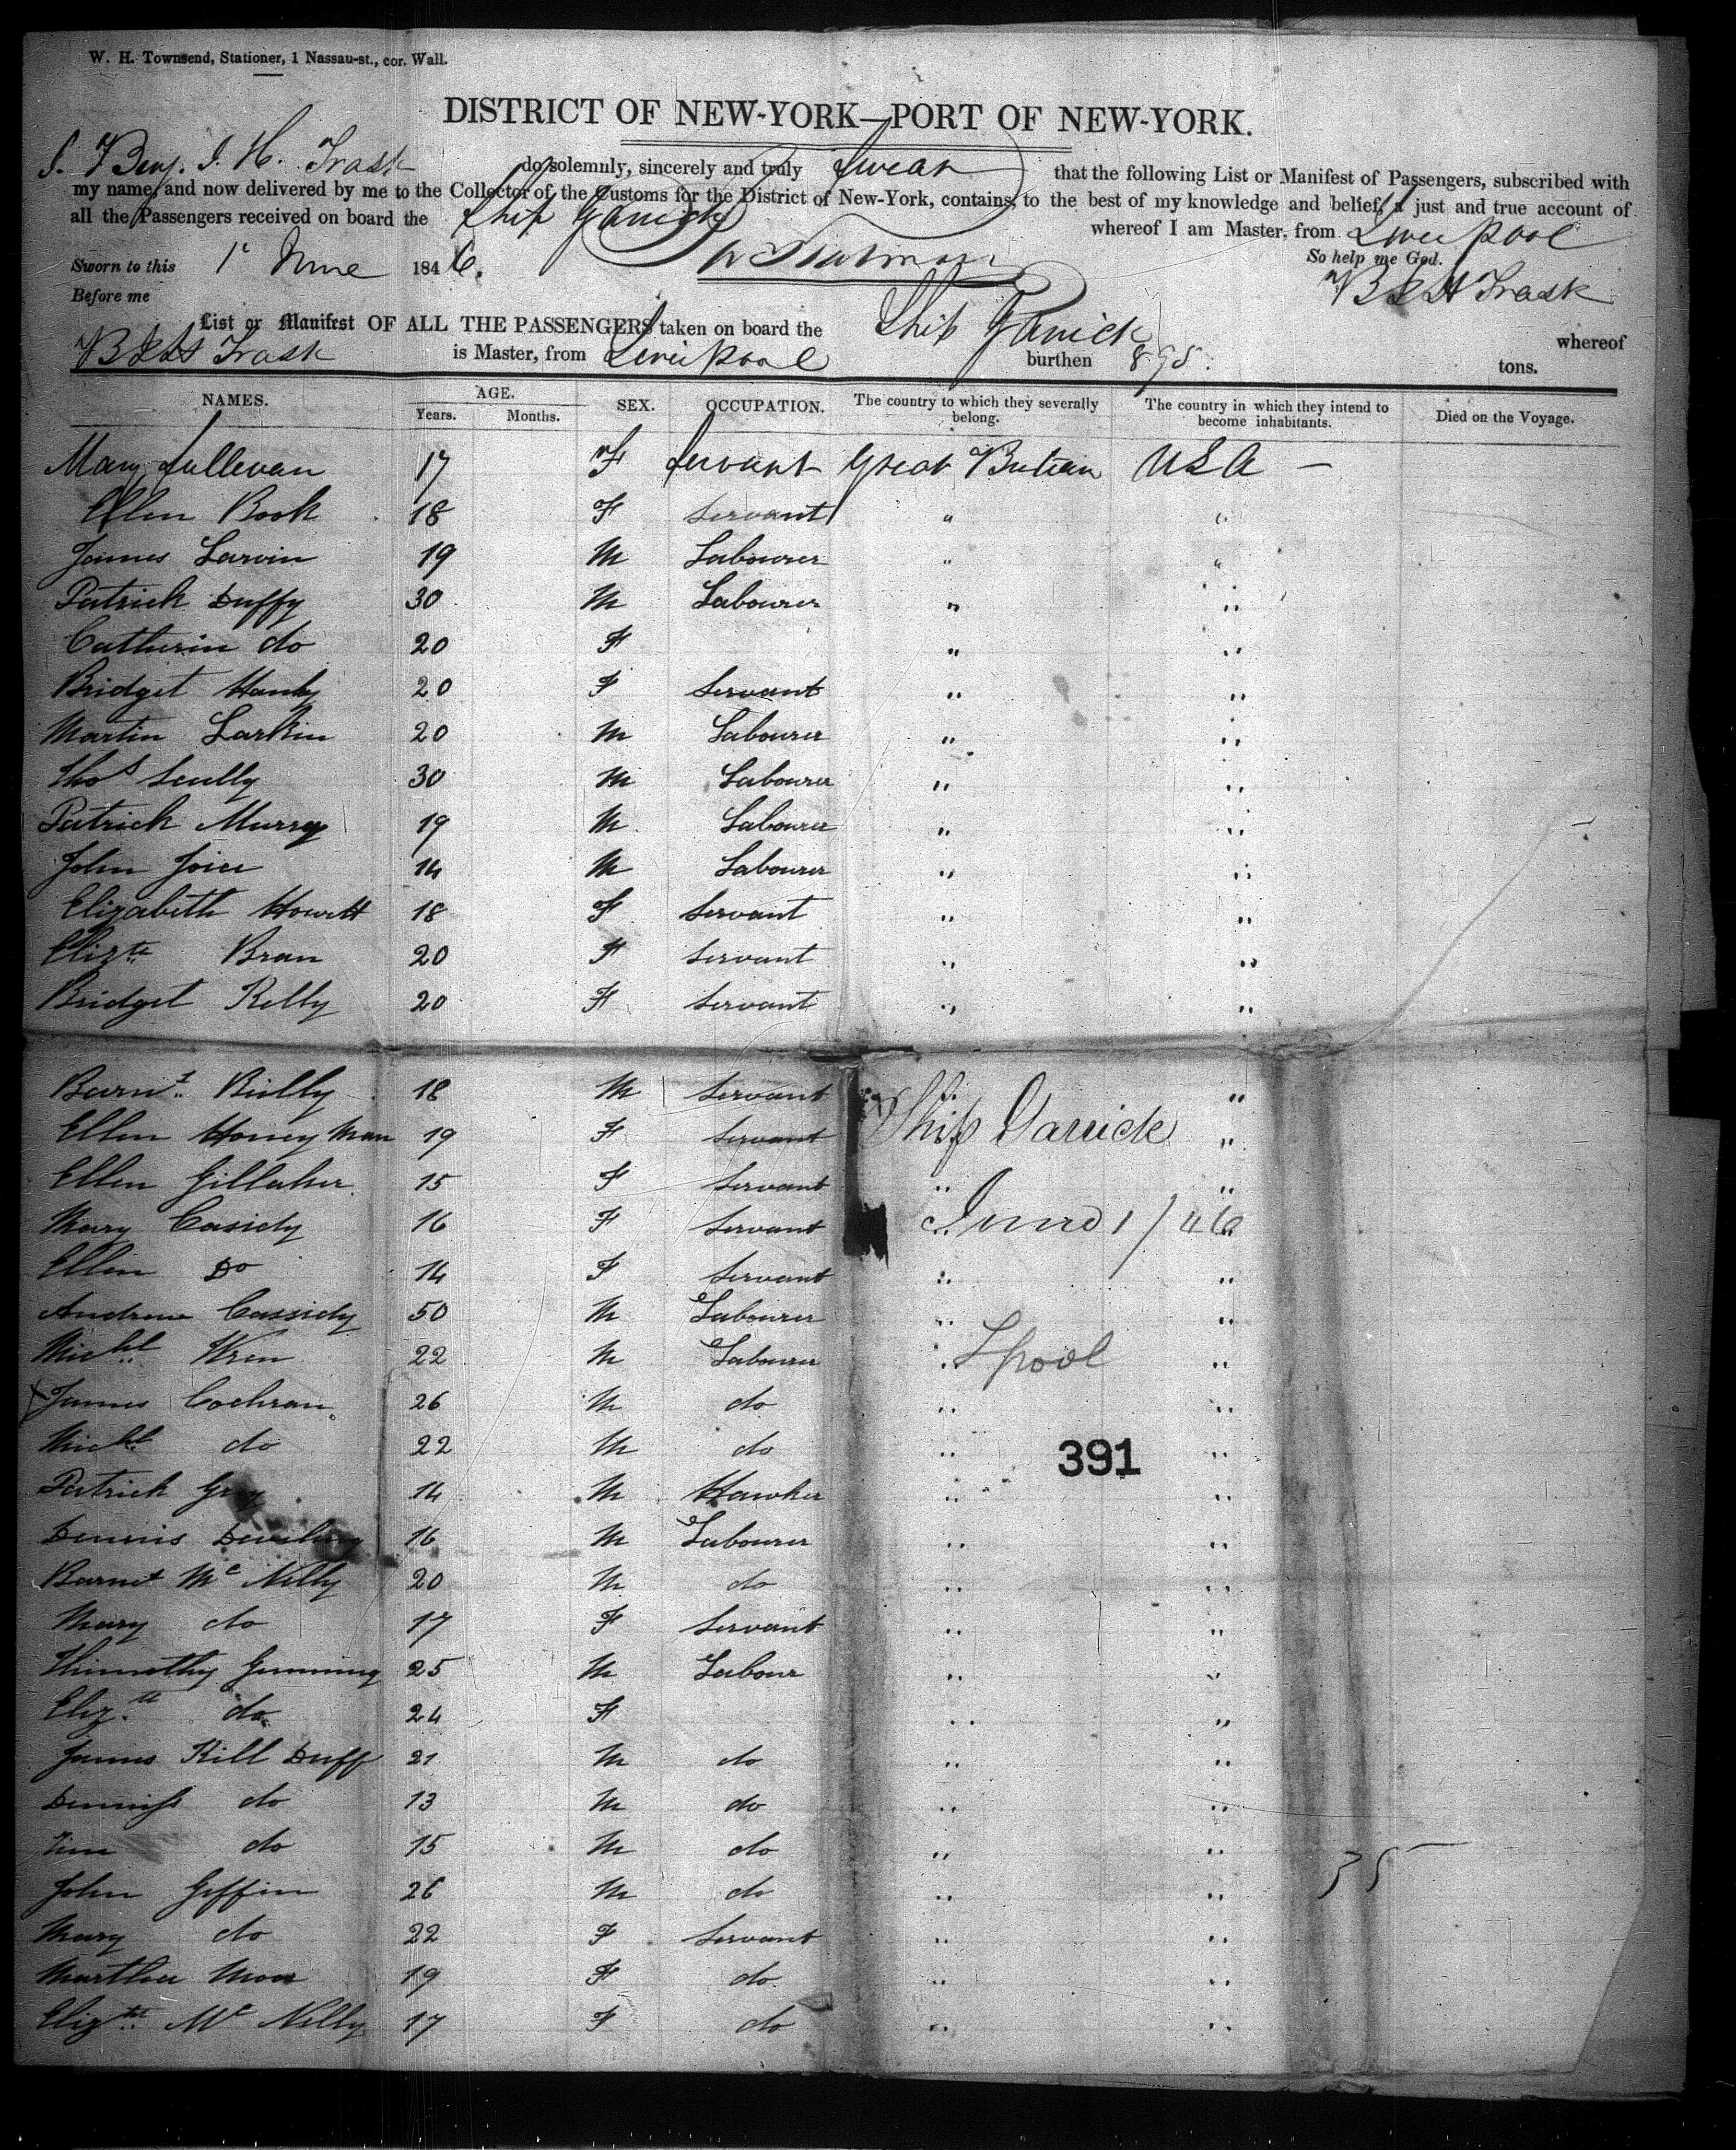 W. H. Townsend, Stationer, 1 Nassau-st., cor. Wall.
DISTRICT OF NEW-YORK—PORT OF NEW-YORK.
I, Benj. I. H. Trask do solemnly, sincerely and truly Swear that the following List or Manifest of Passengers, subscribed with
my name, and now delivered by me to the Collector of the Customs for the District of New-York, contains, to the best of my knowledge and belief, a just and true account of
all the Passengers received on board the Ship Garrick whereof I am Master, from Liverpool
Sworn to this 1st June 1846. So help me God.
Before me B I H Trask
List or Manifest OF ALL THE PASSENGERS taken on board the Ship Garrick whereof
B I H Trask is Master, from Liverpool burthen 895 tons.
NAMES. AGE. SEX. OCCUPATION. The country to which they severally belong. The country in which they intend to become inhabitants. Died on the Voyage.
Years. Months.
Mary Sullevan 17 F Servant Great Britain USA —
Ellen Book 18 F Servant " "
James Larvin 19 M Labourer " "
Patrick Duffy 30 M Labourer " "
Catherin do 20 F " "
Bridget Hanly 20 F Servant " "
Martin Larkin 20 M Labourer " "
Thos Scully 30 M Labourer " "
Patrick Murray 19 M Labourer " "
John Joice 14 M Labourer " "
Elizabeth Howitt 18 F Servant " "
Elizth Bran 20 F Servant " "
Bridget Kelly 20 F Servant " "
Barnt Bully 18 M Servant " "
Ellen Honey Man 19 F Servant Ship Garrick "
Ellen Gillaher 15 F Servant " "
Mary Casidy 16 F Servant June 1/46 "
Ellen Do 14 F Servant " "
Andrew Cassidy 50 M Labourer " "
Michl Wren 22 M Labourer " Lpool "
James Cochran 26 M do " "
Michl do 22 M do " "
391
Patrick Gray 14 M Hawker " "
Dennis 16 M Labourer " "
Barnet Mc Nelly 20 M do " "
Mary do 17 F Servant " "
Thimothy Gumming 25 M Labour " "
Elizth do 24 F " "
James Kill Duff 21 M do " "
Denniss do 13 M do " "
Jim do 15 M do " "
35
John Giffin 26 M do " "
Mary do 22 F Servant " "
Martha Moor 19 F do " "
Elizth Mc Nelly 17 F do " "